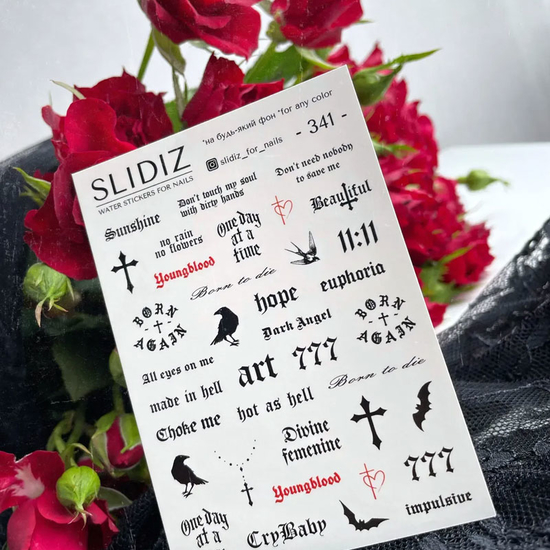 *на будь-який фон *for any color
SLIDIZ
WATER STICKERS FOR NAILS
slidiz_for_nails
- 341 -
Sunshine
Don't touch my soul
with dirty hands
Don't need nobody
to save me
no rain
no flowers
One day
at a
time
Beautiful
Youngblood
11:11
Born to die
hope
euphoria
BORN
AGAIN
Dark Angel
BORN
AGAIN
All eyes on me
art
777
Born to die
made in hell
hot as hell
Choke me
Divine
femenine
777
Youngblood
impulsive
One day
at a
CryBaby